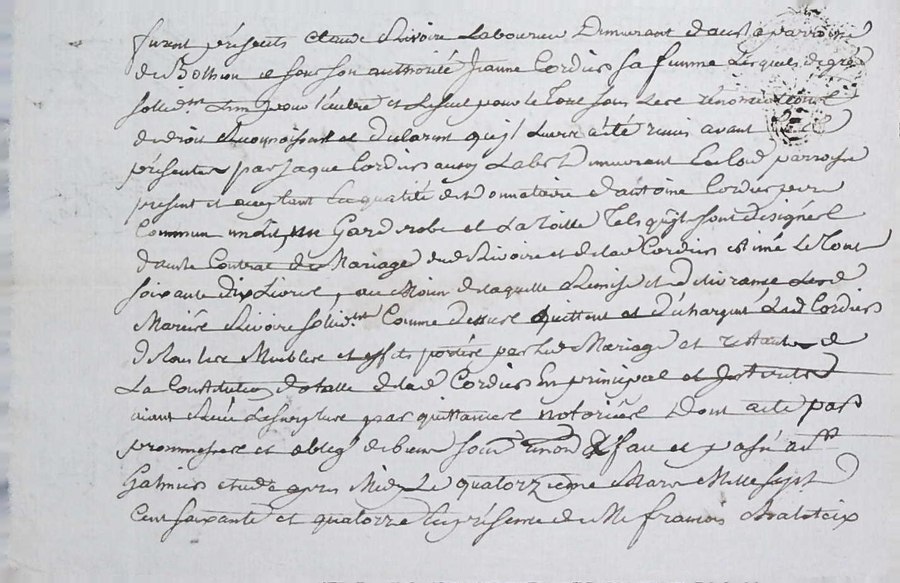 furent présents Claude Livoire Laboureur demeurant dans la parroisse
de Bothion et sous son authorité Jeanne Cordier sa femme lesquels de gré
solid.mt l'un pour l'autre et le seul pour le tout sous les renonciations
de droit reconnoissent et declarent qu'il leur a été remis avant
présentes par Jaque Cordier aussy Lab.r demeurant parroisse
present et acceptant en qualité de donnataire d'antoine Cordier pere
Commun un lit, un Garderobe et la toille tels qu'ils sont designés
dans le Contrat de Mariage dud Livoire et de lad Cordier estimé le tout
soixante dix livres, au Moien de laquelle remise et délivrance les d
Mariés Livoire solid.mt Comme dessus quittent et déchargent led Cordier
de tous les Meubles et effets portés par led Mariage et restants de
La Constitution dotalle de lad Cordier en principal et
aiant receu le surplus par quittances notoriées Dont acte par
prommesses et oblig de biens soum renon fait et passé a St
Galmier etude apres Midy Le quatorzieme Mars Mille sept
Cent soixante et quatorze en présence de Me francois